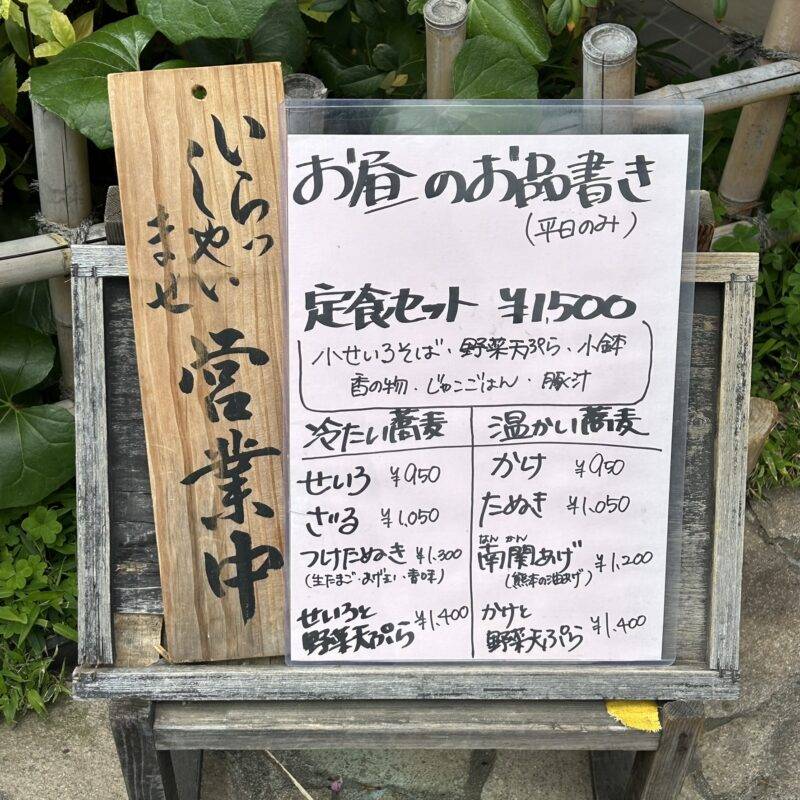 いらっ
しゃい
ませ
営業中
お昼のお品書き
(平日のみ)
定食セット ¥1,500
小せいろそば・野菜天ぷら・小鉢
香の物・じゃこごはん・豚汁
冷たい蕎麦
せいろ ¥950
ざる ¥1,050
つけたぬき ¥1,300
(生たまご・あげ玉・香味)
せいろと
野菜天ぷら ¥1,400
温かい蕎麦
かけ ¥950
たぬき ¥1,050
なん かん
南関あげ ¥1,200
(熊本の油あげ)
かけと
野菜天ぷら ¥1,400